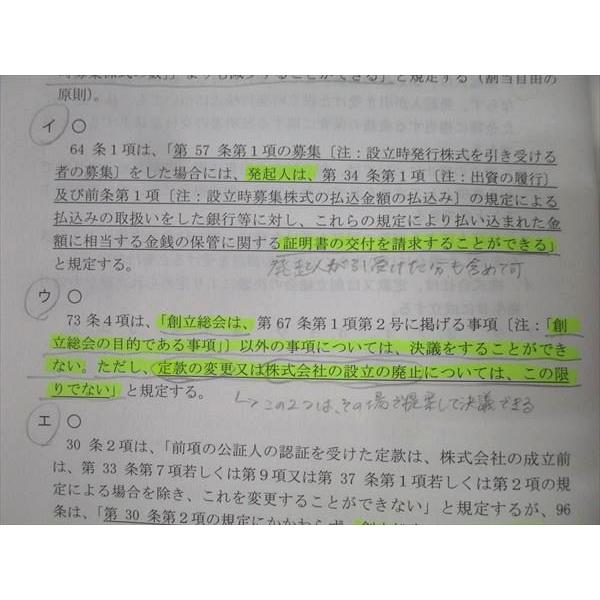 時募集株式の数」よりも減少することができる」と規定する（割当自由の
原則）。
イ ○
64 条 1 項は、「第 57 条第 1 項の募集〔注：設立時発行株式を引き受ける
者の募集〕をした場合には、発起人は、第 34 条第 1 項〔注：出資の履行〕
及び前条第 1 項〔注：設立時募集株式の払込金額の払込み〕の規定による
払込みの取扱いをした銀行等に対し、これらの規定により払い込まれた金
額に相当する金銭の保管に関する証明書の交付を請求することができる」
と規定する。
発起人が引受けた分も含めて可
ウ ○
73 条 4 項は、「創立総会は、第 67 条第 1 項第 2 号に掲げる事項〔注：「創
立総会の目的である事項」〕以外の事項については、決議をすることができ
ない。ただし、定款の変更又は株式会社の設立の廃止については、この限
りでない」と規定する。
↳ この2つは、その場で提案して決議できる
エ ○
30 条 2 項は、「前項の公証人の認証を受けた定款は、株式会社の成立前
は、第 33 条第 7 項若しくは第 9 項又は第 37 条第 1 項若しくは第 2 項の規
定による場合を除き、これを変更することができない」と規定するが、96
条は、「第 30 条第 2 項の規定にかかわらず、